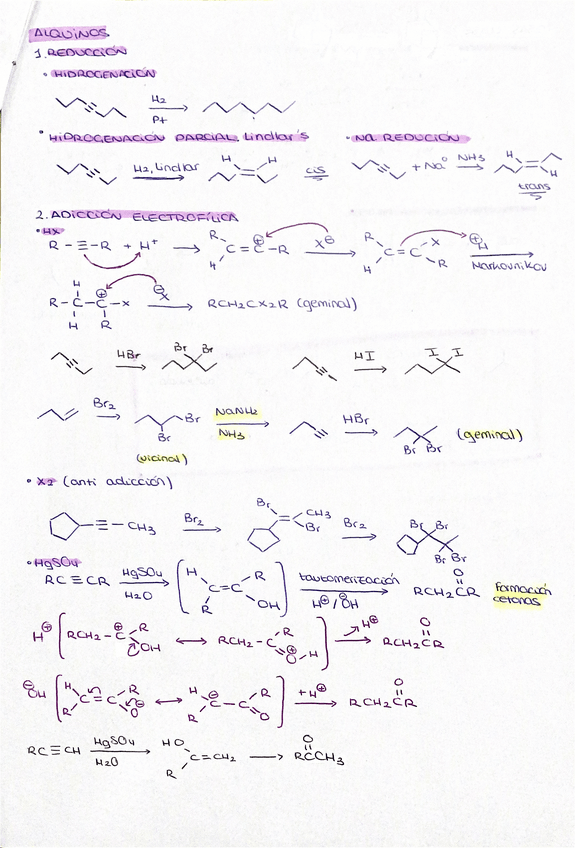 ALQUINOS
1. REDUCCIÓN
• HIDROGENACIÓN
H2
Pt
• HIDROGENACIÓN PARCIAL. Lindlar's
• Na REDUCIÓN
H2, Lindlar
H H
cis
+ Na⁰ NH3
H
H
trans
2. ADICCIÓN ELECTROFÍLICA
• HX
R - ≡ - R + H⁺ → R H C = C⊕ - R X⊖ R H C = C X R ⊕H
Markovnikov
H
R - C - C⊕ - X ⊖X → RCH2CX2R (geminal)
H R
HBr Br Br HI I I
Br2 Br Br NaNH2 NH3 HBr Br Br (geminal)
(vicinal)
• X2 (anti adicción)
- ≡ - CH3 Br2 Br CH3 Br Br2 Br Br Br Br
• HgSO4
RC≡CR HgSO4 H2O [ H R C=C R OH ] tautomerización H⊕/⊖OH RCH2CR O Formación cetonas
H⊕ [ RCH2 - C⊕ R OH ↔ RCH2 - C R O⊕ - H ] H⊕ RCH2CR O
⊖OH [ H R C = C R O⊖ ↔ H R C⊖ - C R O ] + H⊕ → RCH2CR O
RC≡CH HgSO4 H2O → HO R C=CH2 → RCCH3 O